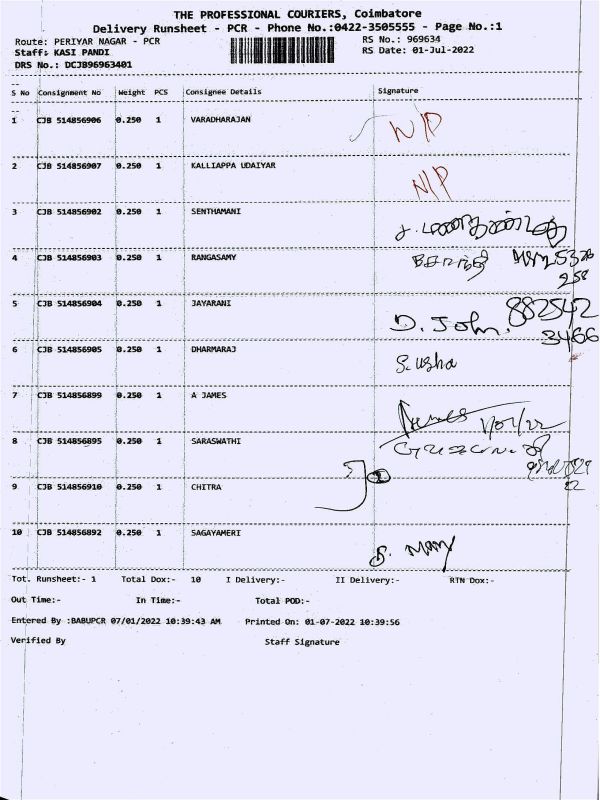 THE PROFESSIONAL COURIERS, Coimbatore
Delivery Runsheet - PCR - Phone No.:0422-3505555 - Page No.:1
Route: PERIYAR NAGAR - PCR RS No.: 969634
Staff: KASI PANDI RS Date: 01-Jul-2022
DRS No.: DCJB96963401
S No Consignment No Weight PCS Consignee Details Signature
1 CJB 514856906 0.250 1 VARADHARAJAN N/P
2 CJB 514856907 0.250 1 KALLIAPPA UDAIYAR N/P
3 CJB 514856902 0.250 1 SENTHAMANI
4 CJB 514856903 0.250 1 RANGASAMY
5 CJB 514856904 0.250 1 JAYARANI D. John. 882542
3466
6 CJB 514856905 0.250 1 DHARMARAJ S. usha
7 CJB 514856899 0.250 1 A JAMES James
8 CJB 514856895 0.250 1 SARASWATHI
9 CJB 514856910 0.250 1 CHITRA
10 CJB 514856892 0.250 1 SAGAYAMERI S. Mary
Tot. Runsheet:- 1 Total Dox:- 10 I Delivery:- II Delivery:- RTN Dox:-
Out Time:- In Time:- Total POD:-
Entered By :BABUPCR 07/01/2022 10:39:43 AM Printed On: 01-07-2022 10:39:56
Verified By Staff Signature